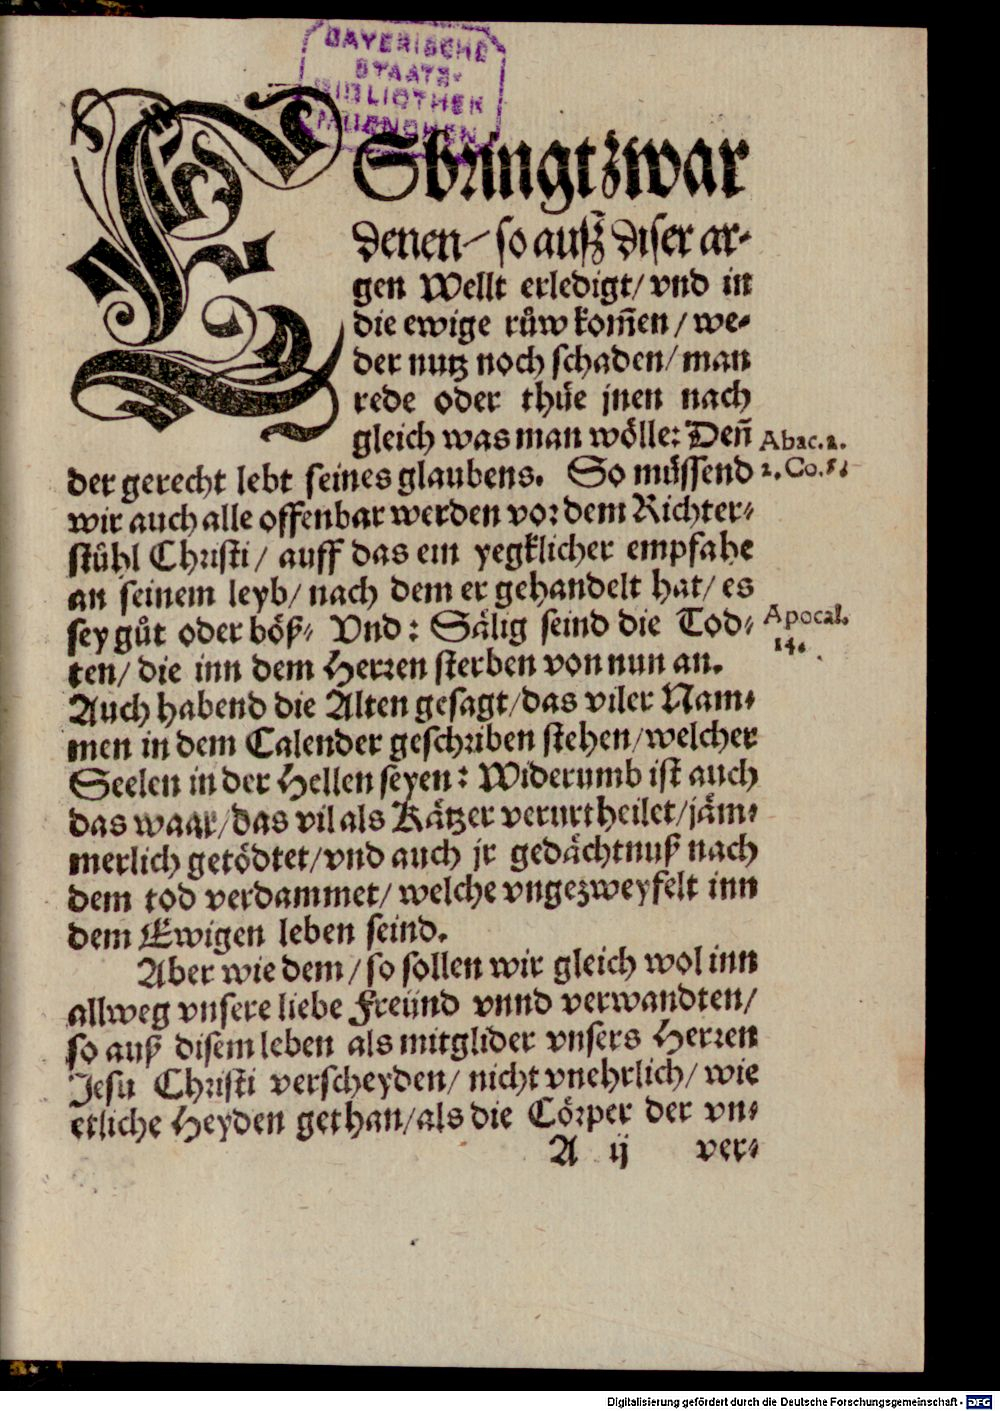 BAYERISCHE
STAATS-
BIBLIOTHEK
MUENCHEN
ESbringt zwar
denen / so ausz diser ar-
gen Wellt erledigt / vnd in
die ewige růw kom̃en / we-
der nutz noch schaden / man
rede oder thüe jnen nach
gleich was man wölle: Deñ
Abac. 2.
der gerecht lebt seines glaubens. So müssend
2. Co. 5.
wir auch alle offenbar werden vor dem Richter-
stůhl Christi / auff das ein yegklicher empfahe
an seinem leyb / nach dem er gehandelt hat / es
sey gůt oder böß. Vnd: Sälig seind die Tod-
Apocal.
14.
ten / die inn dem Herren sterben von nun an.
Auch habend die Alten gesagt / das viler Nam-
men in dem Calender geschriben stehen / welcher
Seelen in der Hellen seyen: Widerumb ist auch
das waar / das vil als Kätzer verurtheilet / jäm-
merlich getödtet / vnd auch jr gedächtnuß nach
dem tod verdammet / welche vngezweyfelt inn
dem Ewigen leben seind.
Aber wie dem / so sollen wir gleich wol inn
allweg vnsere liebe Freünd vnnd verwandten /
so auß disem leben als mitglider vnsers Herren
Jesu Christi verscheyden / nicht vnehrlich / wie
etliche Heyden gethan / als die Cörper der vn-
A ij ver-
Digitalisierung gefördert durch die Deutsche Forschungsgemeinschaft - DFG